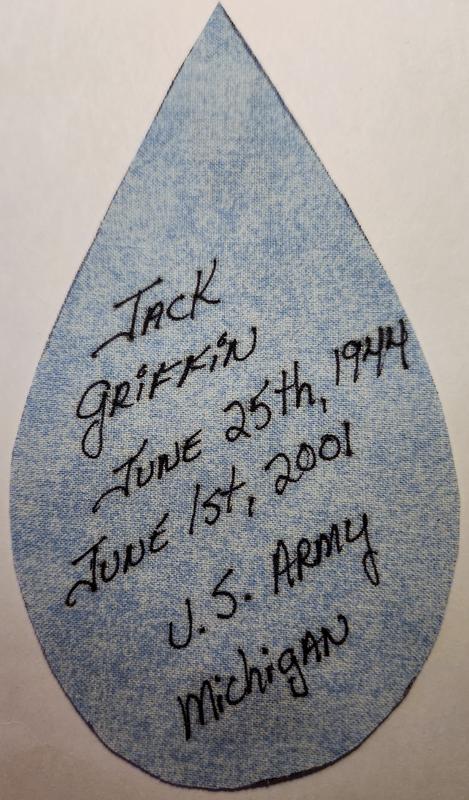 Jack
Griffin
June 25th, 1944
June 1st, 2001
U.S. Army
Michigan